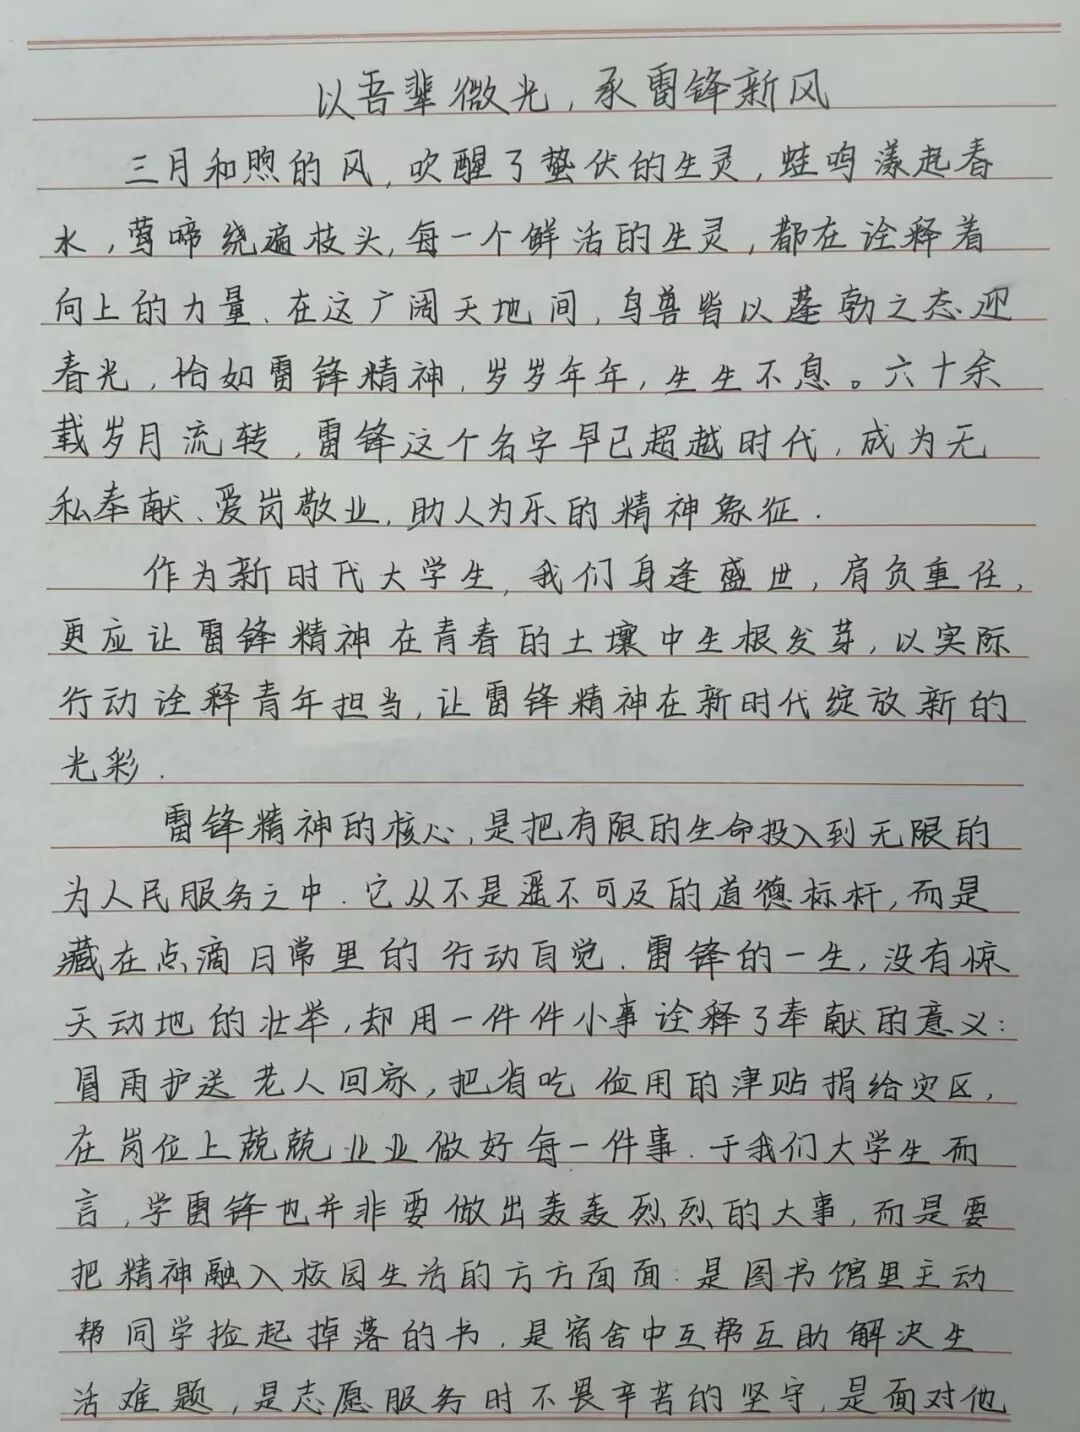 以吾辈微光，承雷锋新风
三月和煦的风，吹醒了蛰伏的生灵，蛙鸣漾起春
水，莺啼绕遍枝头，每一个鲜活的生灵，都在诠释着
向上的力量、在这广阔天地间，鸟兽皆以蓬勃之态迎
春光，恰如雷锋精神，岁岁年年，生生不息。六十余
载岁月流转，雷锋这个名字早已超越时代，成为无
私奉献、爱岗敬业，助人为乐的精神象征．
作为新时代大学生，我们身逢盛世，肩负重任，
更应让雷锋精神在青春的土壤中生根发芽，以实际
行动诠释青年担当，让雷锋精神在新时代绽放新的
光彩．
雷锋精神的核心，是把有限的生命投入到无限的
为人民服务之中．它从不是遥不可及的道德标杆，而是
藏在点滴日常里的行动自觉．雷锋的一生，没有惊
天动地的壮举，却用一件件小事诠释了奉献的意义：
冒雨护送老人回家，把省吃俭用的津贴捐给灾区，
在岗位上兢兢业业做好每一件事．于我们大学生而
言，学雷锋也并非要做出轰轰烈烈的大事，而是要
把精神融入校园生活的方方面面：是图书馆里主动
帮同学捡起掉落的书，是宿舍中互帮互助解决生
活难题，是志愿服务时不畏辛苦的坚守，是面对他